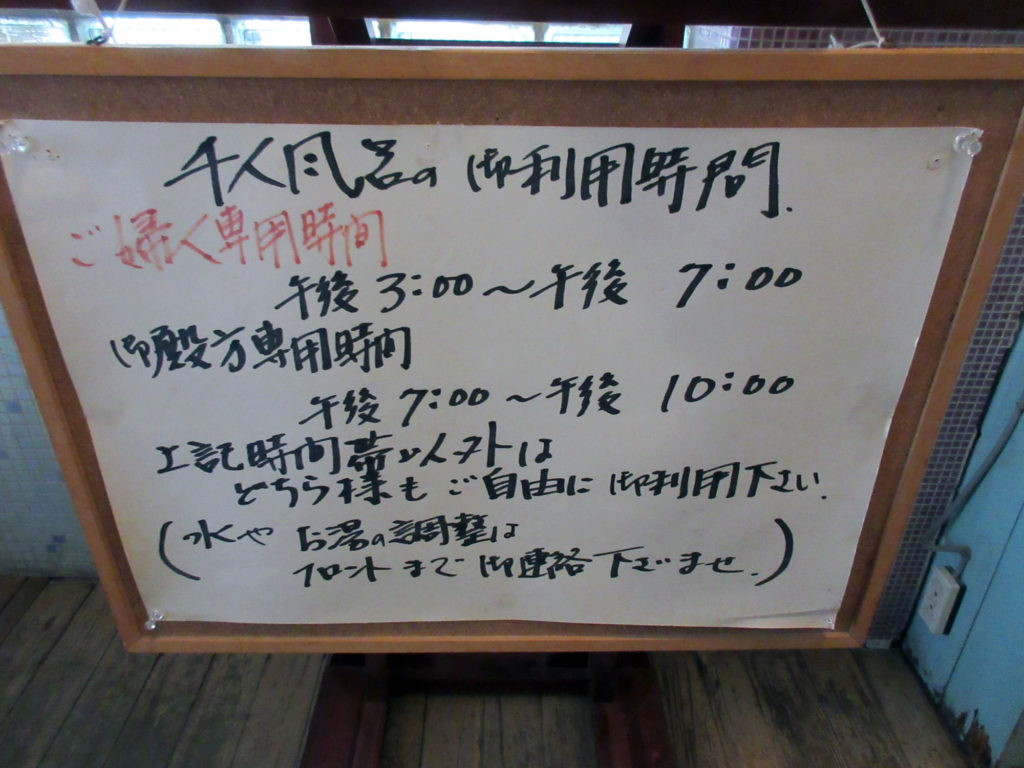 千人風呂の御利用時間.
ご婦人専用時間
午後3:00〜午後 7:00
御殿方専用時間
午後7:00〜午後 10:00
上記時間帯以外は
どちら様もご自由に御利用下さい.
(水やお湯の調整は
フロントまで御連絡下ざませ.)